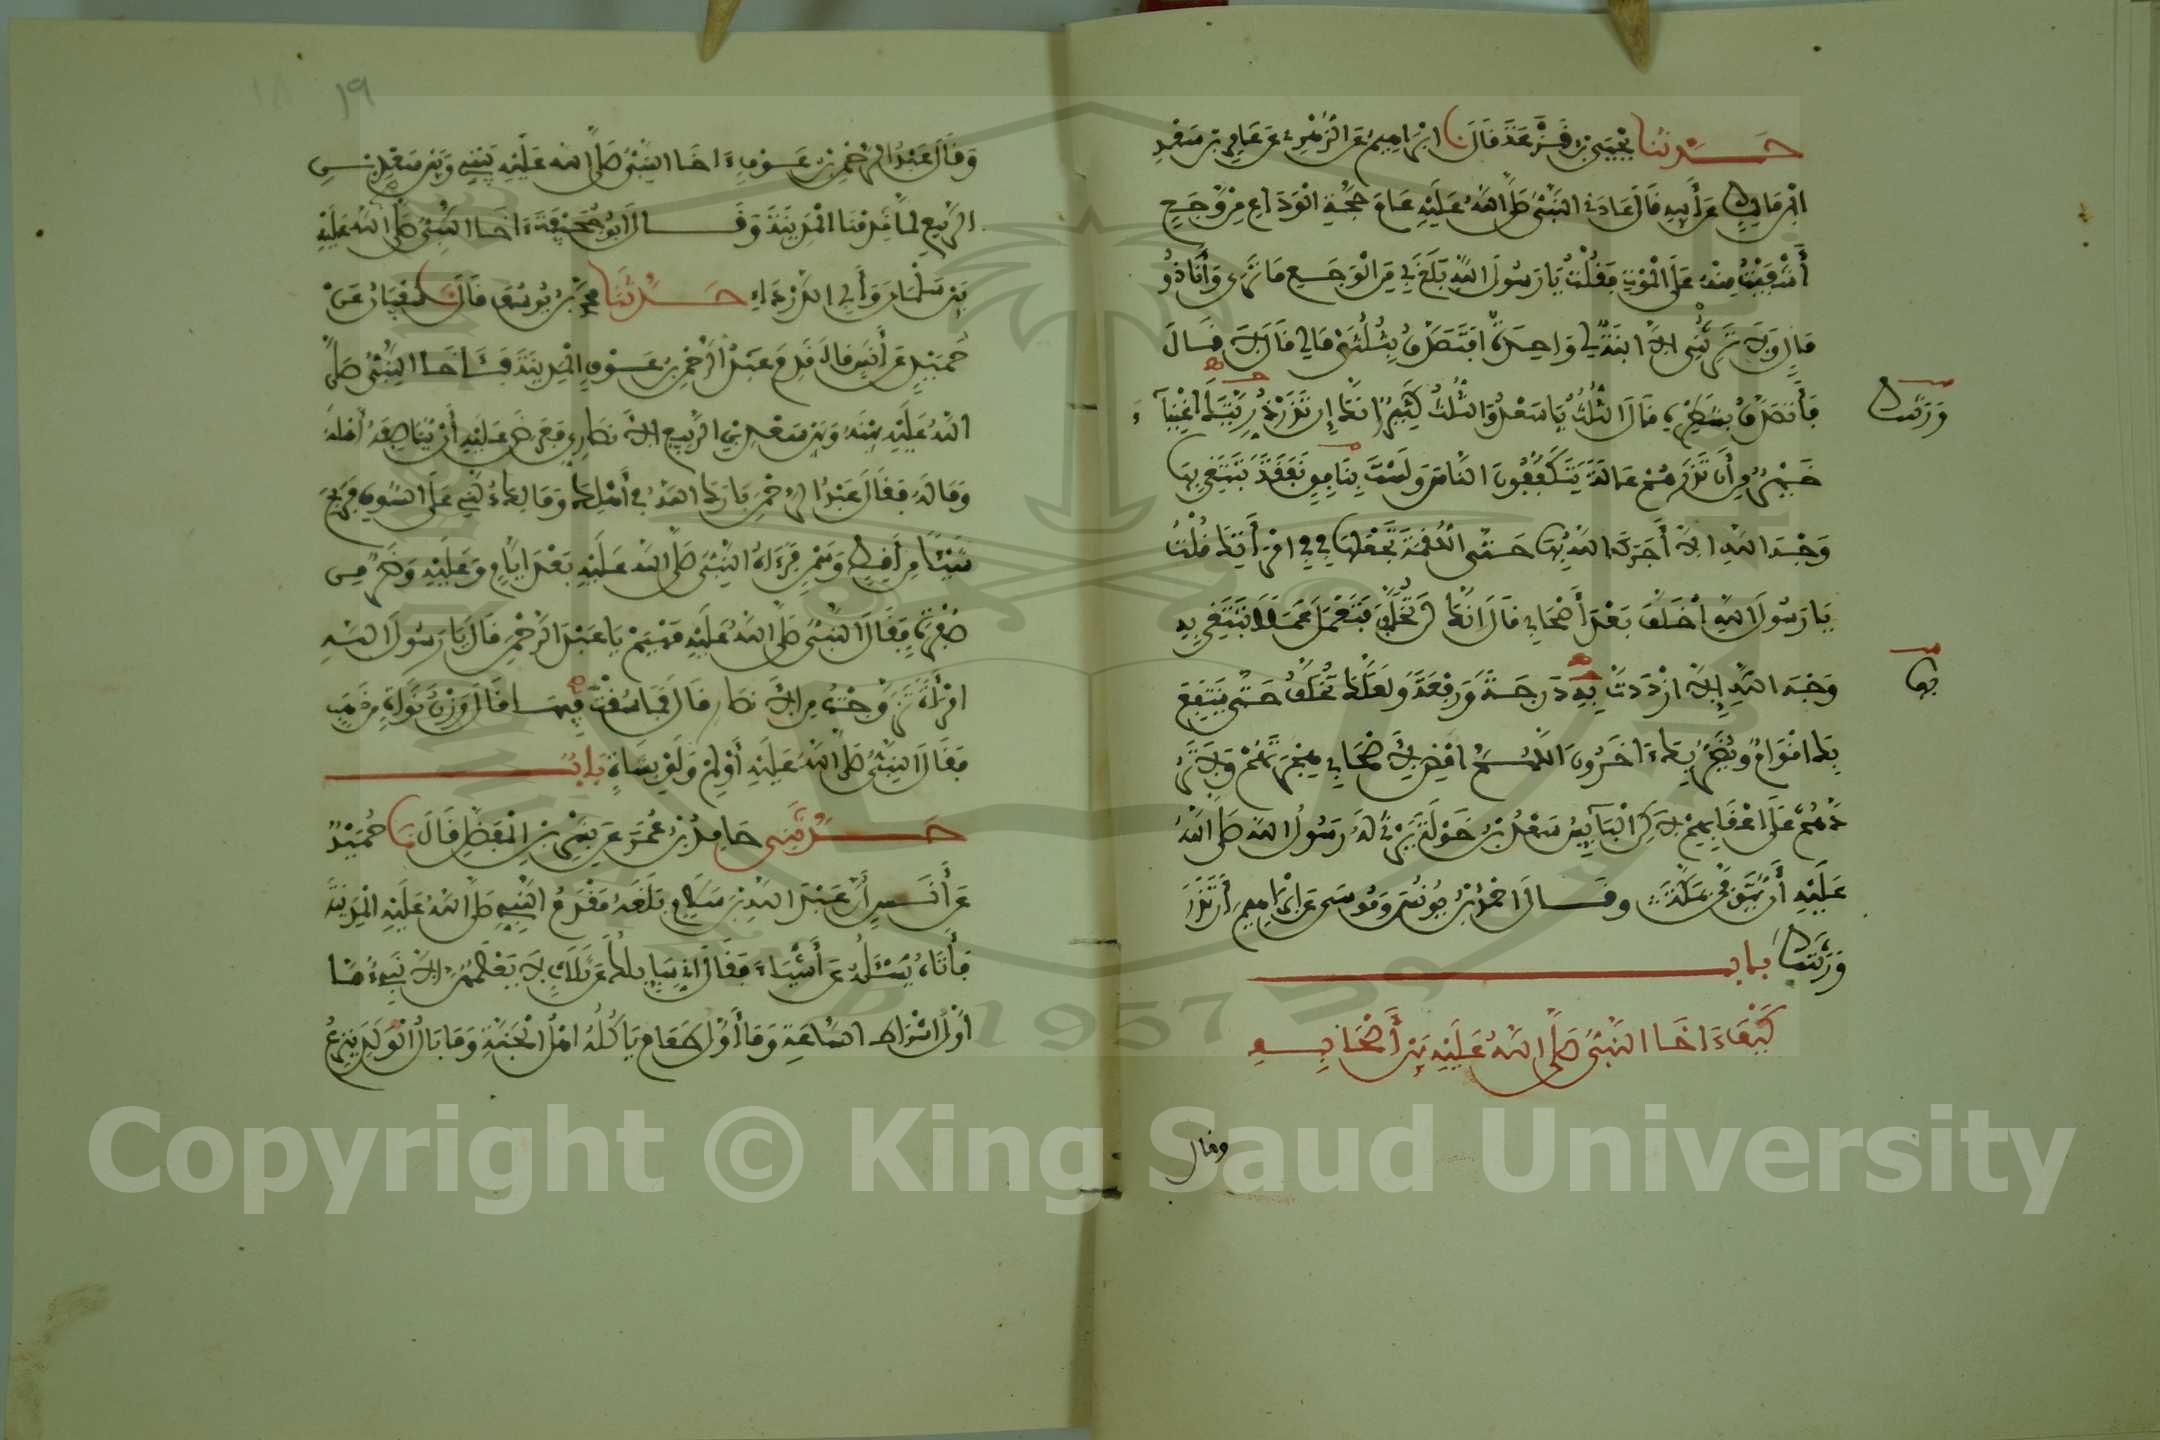 حدثنا يحيى بن قزعة قال نا ابراهيم عن الزهري عن عامر بن سعد
ابن مالك عن أبيه قال عادني النبي صلى الله عليه عام حجة الوداع من وجع
أشفيت منه على الموت فقلت يا رسول الله بلغ بي من الوجع ما ترى وأنا ذو
مال ولا ترثني الا ابنة لي واحدة أفتصدق بثلثي مالي قال لا قال
فأتصدق بشطره قال الثلث يا سعد والثلث كثير انك إن تذر ذريتك أغنياء
ورثتك
خير من أن تذرهم عالة يتكففون الناس ولست بنافق نفقة تبتغي بها
وجه الله الا أجرك الله بها حتى اللقمة تجعلها في في امرأتك قلت
يا رسول الله أخلف بعد أصحابي قال انك لن تخلف فتعمل عملا تبتغي به
وجه الله إلا ازددت به درجة ورفعة ولعلك تخلف حتى ينتفع
بها
بك اقوام ويضر بك ءاخرون اللهم امض لأصحابي هجرتهم ولا تر
دهم على اعقابهم لكن البائس سعد بن خولة يرثي له رسول الله صلى الله
عليه أن توفي بمكة وقال احمد بن يونس وموسى عن ابراهيم أن تذر
ورثتك باب
كيف ءاخا النبي صلى الله عليه بين أصحابه
وقال
١٨ ١٩
وقال عبد الرحمن بن عوف ءاخا النبي صلى الله عليه بيني وبين سعد بن
الربيع لما قدمنا المدينة وقال ابو جحيفة ءاخا النبي صلى الله عليه
بين سلمان وأبي الدرداء حدثنا محمد بن يوسف قال نا سفيان عن
حميد عن أنس قال قدم عبد الرحمن بن عوف المدينة فآخا النبي صلى
الله عليه بينه وبين سعد بن الربيع الانصاري فعرض عليه أن يناصفه أهله
وماله فقال عبد الرحمن بارك الله لك في أهلك ومالك دلني على السوق فربح
شيئا من أقط وسمن فرءاه النبي صلى الله عليه بعد ايام وعليه وضر من
صفرة فقال النبي صلى الله عليه مهيم يا عبد الرحمن قال يا رسول الله
تزوجت امرأة من الانصار قال فما سقت فيها قال وزن نواة من ذهب
فقال النبي صلى الله عليه أولم ولو بشاة باب
حدثني حامد بن عمر عن بشر بن المفضل قال نا حميد
عن أنس أن عبد الله بن سلام بلغه مقدم النبي صلى الله عليه المدينة
فأتاه يسئله عن أشياء فقال اني سايلك عن ثلاث لا يعلمهن الا نبي ما
أول اشراط الساعة وما أول طعام يأكله اهل الجنة وما بال الولد ينزع
Copyright © King Saud University
1957